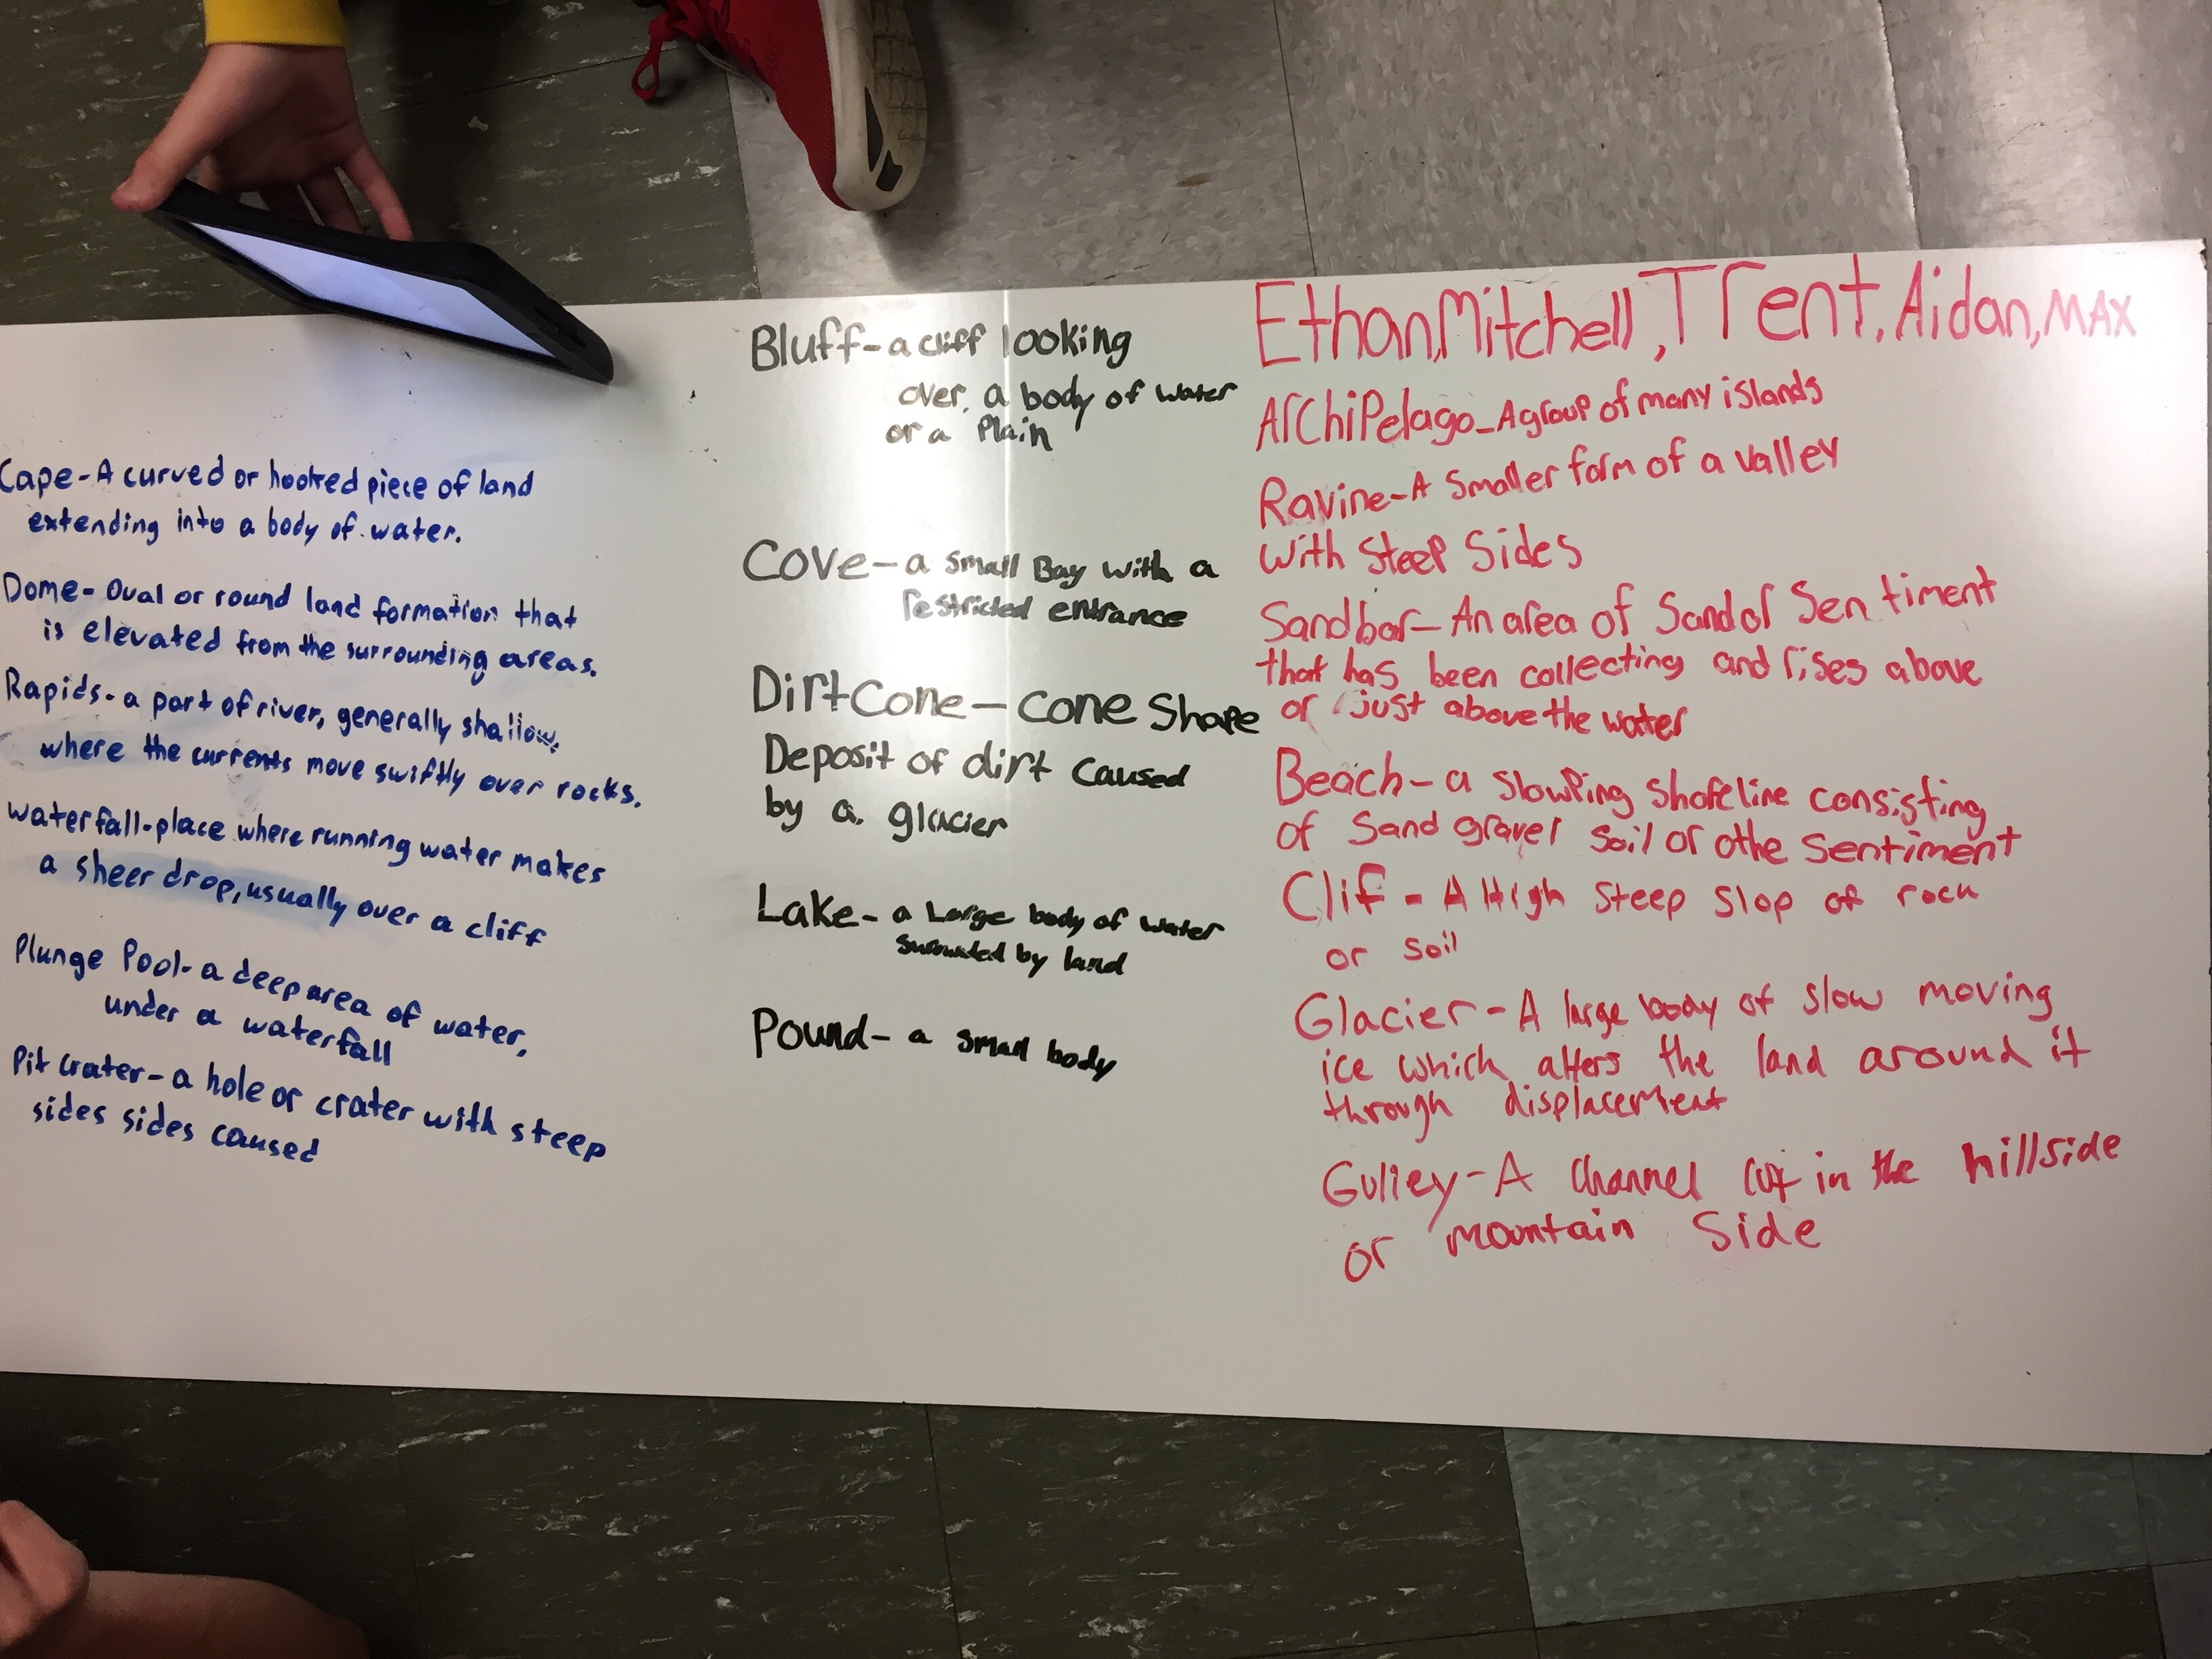 Cape-A curved or hooked piece of land
extending into a body of water.
Dome- Oval or round land formation that
is elevated from the surrounding areas.
Rapids- a part of river, generally shallow,
where the currents move swiftly over rocks.
waterfall-place where running water makes
a sheer drop, usually over a cliff
Plunge Pool- a deep area of water,
under a waterfall
Pit Crater- a hole or crater with steep
sides sides caused
Bluff- a cliff looking
over a body of water
or a Plain
Cove- a small Bay with a
restricted entrance
Dirt Cone- cone Shape
Deposit of dirt caused
by a glacier
Lake- a Large body of water
by land
Pound- a small body
Ethan, Mitchell, Trent, Aidan, MAX
Archipelago- A group of many islands
Ravine- A smaller form of a valley
with steep sides
Sandbar- An area of Sand or Sentiment
that has been collecting and rises above
or just above the water
Beach- a slowping shoreline consisting
of sand gravel soil or othe sentiment
Clif- A High steep slop of rock
or soil
Glacier- A large body of slow moving
ice which alters the land around it
through displacement
Gulley- A channel cut in the hillside
or mountain side